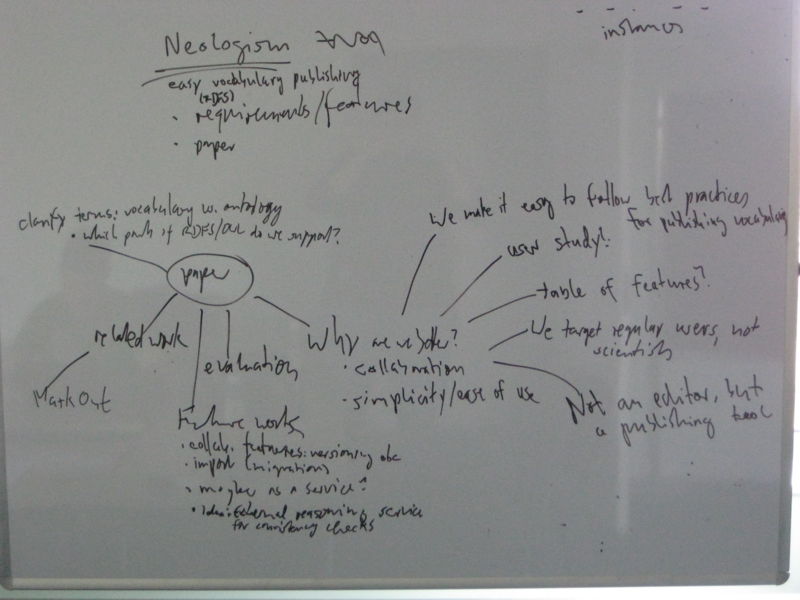 instances
Neologism
easy vocabulary publishing
(RDFS)
• requirements/features
• paper
clarify terms: vocabulary vs. ontology
• which parts of RDFS/OWL do we support?
paper
related work
MarkOut
evaluation
Future works
• collab. features: versioning etc
• import (migration)
• maybe as a service?
• idea: External reasoning service
for consistency checks
Why are we better?
• collaboration
• simplicity/ease of use
We make it easy to follow best practices
for publishing vocabularies
user study?
table of features?
We target regular users, not
scientists
Not an editor, but
a publishing tool